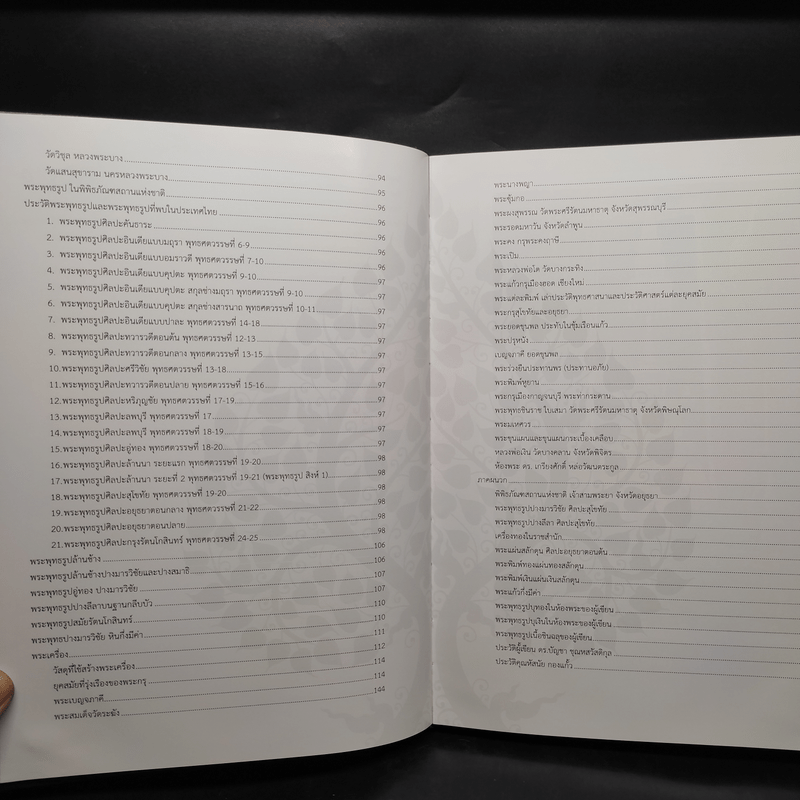 วัดวิชุล หลวงพระบาง
วัดแสนสุขาราม นครหลวงพระบาง 94
พระพุทธรูป ในพิพิธภัณฑสถานแห่งชาติ 95
ประวัติพระพุทธรูปและพระพุทธรูปที่พบในประเทศไทย 96
1. พระพุทธรูปศิลปะคันธาระ 96
2. พระพุทธรูปศิลปะอินเดียแบบมถุรา พุทธศตวรรษที่ 6-9 96
3. พระพุทธรูปศิลปะอินเดียแบบอมราวดี พุทธศตวรรษที่ 7-10 96
4. พระพุทธรูปศิลปะอินเดียแบบคุปตะ พุทธศตวรรษที่ 9-10 96
5. พระพุทธรูปศิลปะอินเดียแบบคุปตะ สกุลช่างมถุรา พุทธศตวรรษที่ 9-10 97
6. พระพุทธรูปศิลปะอินเดียแบบคุปตะ สกุลช่างสารนาถ พุทธศตวรรษที่ 10-11 97
7. พระพุทธรูปศิลปะอินเดียแบบปาละ พุทธศตวรรษที่ 14-18 97
8. พระพุทธรูปศิลปะทวารวดีตอนต้น พุทธศตวรรษที่ 12-13 97
9. พระพุทธรูปศิลปะทวารวดีตอนกลาง พุทธศตวรรษที่ 13-15 97
10.พระพุทธรูปศิลปะศรีวิชัย พุทธศตวรรษที่ 13-18 97
11.พระพุทธรูปศิลปะทวารวดีตอนปลาย พุทธศตวรรษที่ 15-16 97
12.พระพุทธรูปศิลปะหริภุญชัย พุทธศตวรรษที่ 17-19 97
13.พระพุทธรูปศิลปะลพบุรี พุทธศตวรรษที่ 17 97
14.พระพุทธรูปศิลปะลพบุรี พุทธศตวรรษที่ 18-19 97
15.พระพุทธรูปศิลปะอู่ทอง พุทธศตวรรษที่ 18-20 97
16.พระพุทธรูปศิลปะล้านนา ระยะแรก พุทธศตวรรษที่ 19-20 98
17.พระพุทธรูปศิลปะล้านนา ระยะที่ 2 พุทธศตวรรษที่ 19-21 (พระพุทธรูป สิงห์ 1) 98
18.พระพุทธรูปศิลปะสุโขทัย พุทธศตวรรษที่ 19-20 98
19.พระพุทธรูปศิลปะอยุธยาตอนกลาง พุทธศตวรรษที่ 21-22 98
20.พระพุทธรูปศิลปะอยุธยาตอนปลาย 98
21.พระพุทธรูปศิลปะกรุงรัตนโกสินทร์ พุทธศตวรรษที่ 24-25 98
พระพุทธรูปล้านช้าง 106
พระพุทธรูปล้านช้างปางมารวิชัยและปางสมาธิ 106
พระพุทธรูปอู่ทอง ปางมารวิชัย 107
พระพุทธรูปปางลีลาบนฐานกลีบบัว 107
พระพุทธรูปสมัยรัตนโกสินทร์ 110
พระพุทธปางมารวิชัย หินกึ่งมีค่า 110
พระเครื่อง 111
วัสดุที่ใช้สร้างพระเครื่อง 112
ยุคสมัยที่รุ่งเรืองของพระกรุ 114
พระเบญจภาคี 114
พระสมเด็จวัดระฆัง 144
พระนางพญา
พระซุ้มกอ
พระผงสุพรรณ วัดพระศรีรัตนมหาธาตุ จังหวัดสุพรรณบุรี
พระรอดมหาวัน จังหวัดลำพูน
พระคง กรุพระคงฤาษี
พระเปิม
พระหลวงพ่อโต วัดบางกระทิง
พระแก้วกรุเมืองฮอด เชียงใหม่
พระแต่ละพิมพ์ เล่าประวัติพุทธศาสนาและประวัติศาสตร์แต่ละยุคสมัย
พระกรุสุโขทัยและอยุธยา
พระยอดขุนพล ประทับในซุ้มเรือนแก้ว
พระปรุหนัง
เบญจภาคี ยอดขุนพล
พระร่วงยืนประทานพร (ประทานอภัย)
พระพิมพ์หูยาน
พระกรุเมืองกาญจนบุรี พระท่ากระดาน
พระพุทธชินราช ใบเสมา วัดพระศรีรัตนมหาธาตุ จังหวัดพิษณุโลก
พระมเหศวร
พระขุนแผนและขุนแผนกระเบื้องเคลือบ
หลวงพ่อเงิน วัดบางคลาน จังหวัดพิจิตร
ห้องพระ ดร. เกรียงศักดิ์ หล่อวัฒนตระกูล
ภาคผนวก
พิพิธภัณฑสถานแห่งชาติ เจ้าสามพระยา จังหวัดอยุธยา
พระพุทธรูปปางมารวิชัย ศิลปะสุโขทัย
พระพุทธรูปปางลีลา ศิลปะสุโขทัย
เครื่องทองในราชสำนัก
พระแผ่นสลักดุน ศิลปะอยุธยาตอนต้น
พระพิมพ์ทองแผ่นทองสลักดุน
พระพิมพ์เงินแผ่นเงินสลักดุน
พระแก้วกึ่งมีค่า
พระพุทธรูปบุทองในห้องพระของผู้เขียน
พระพุทธรูปบุเงินในห้องพระของผู้เขียน
พระพุทธรูปเนื้อชินฉลุของผู้เขียน
ประวัติผู้เขียน ดร.บัญชา ชุณหสวัสดิกุล
ประวัติคุณหัสนัย กองแก้ว